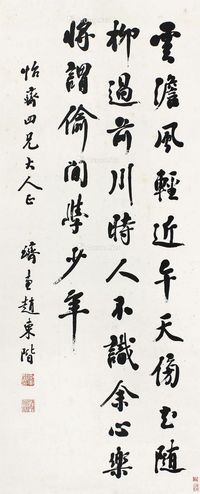 雲澹風輕近午天傍花随
柳過前川時人不識余心樂
將謂偷閒學少年
怡齋四兄大人正
趙東階